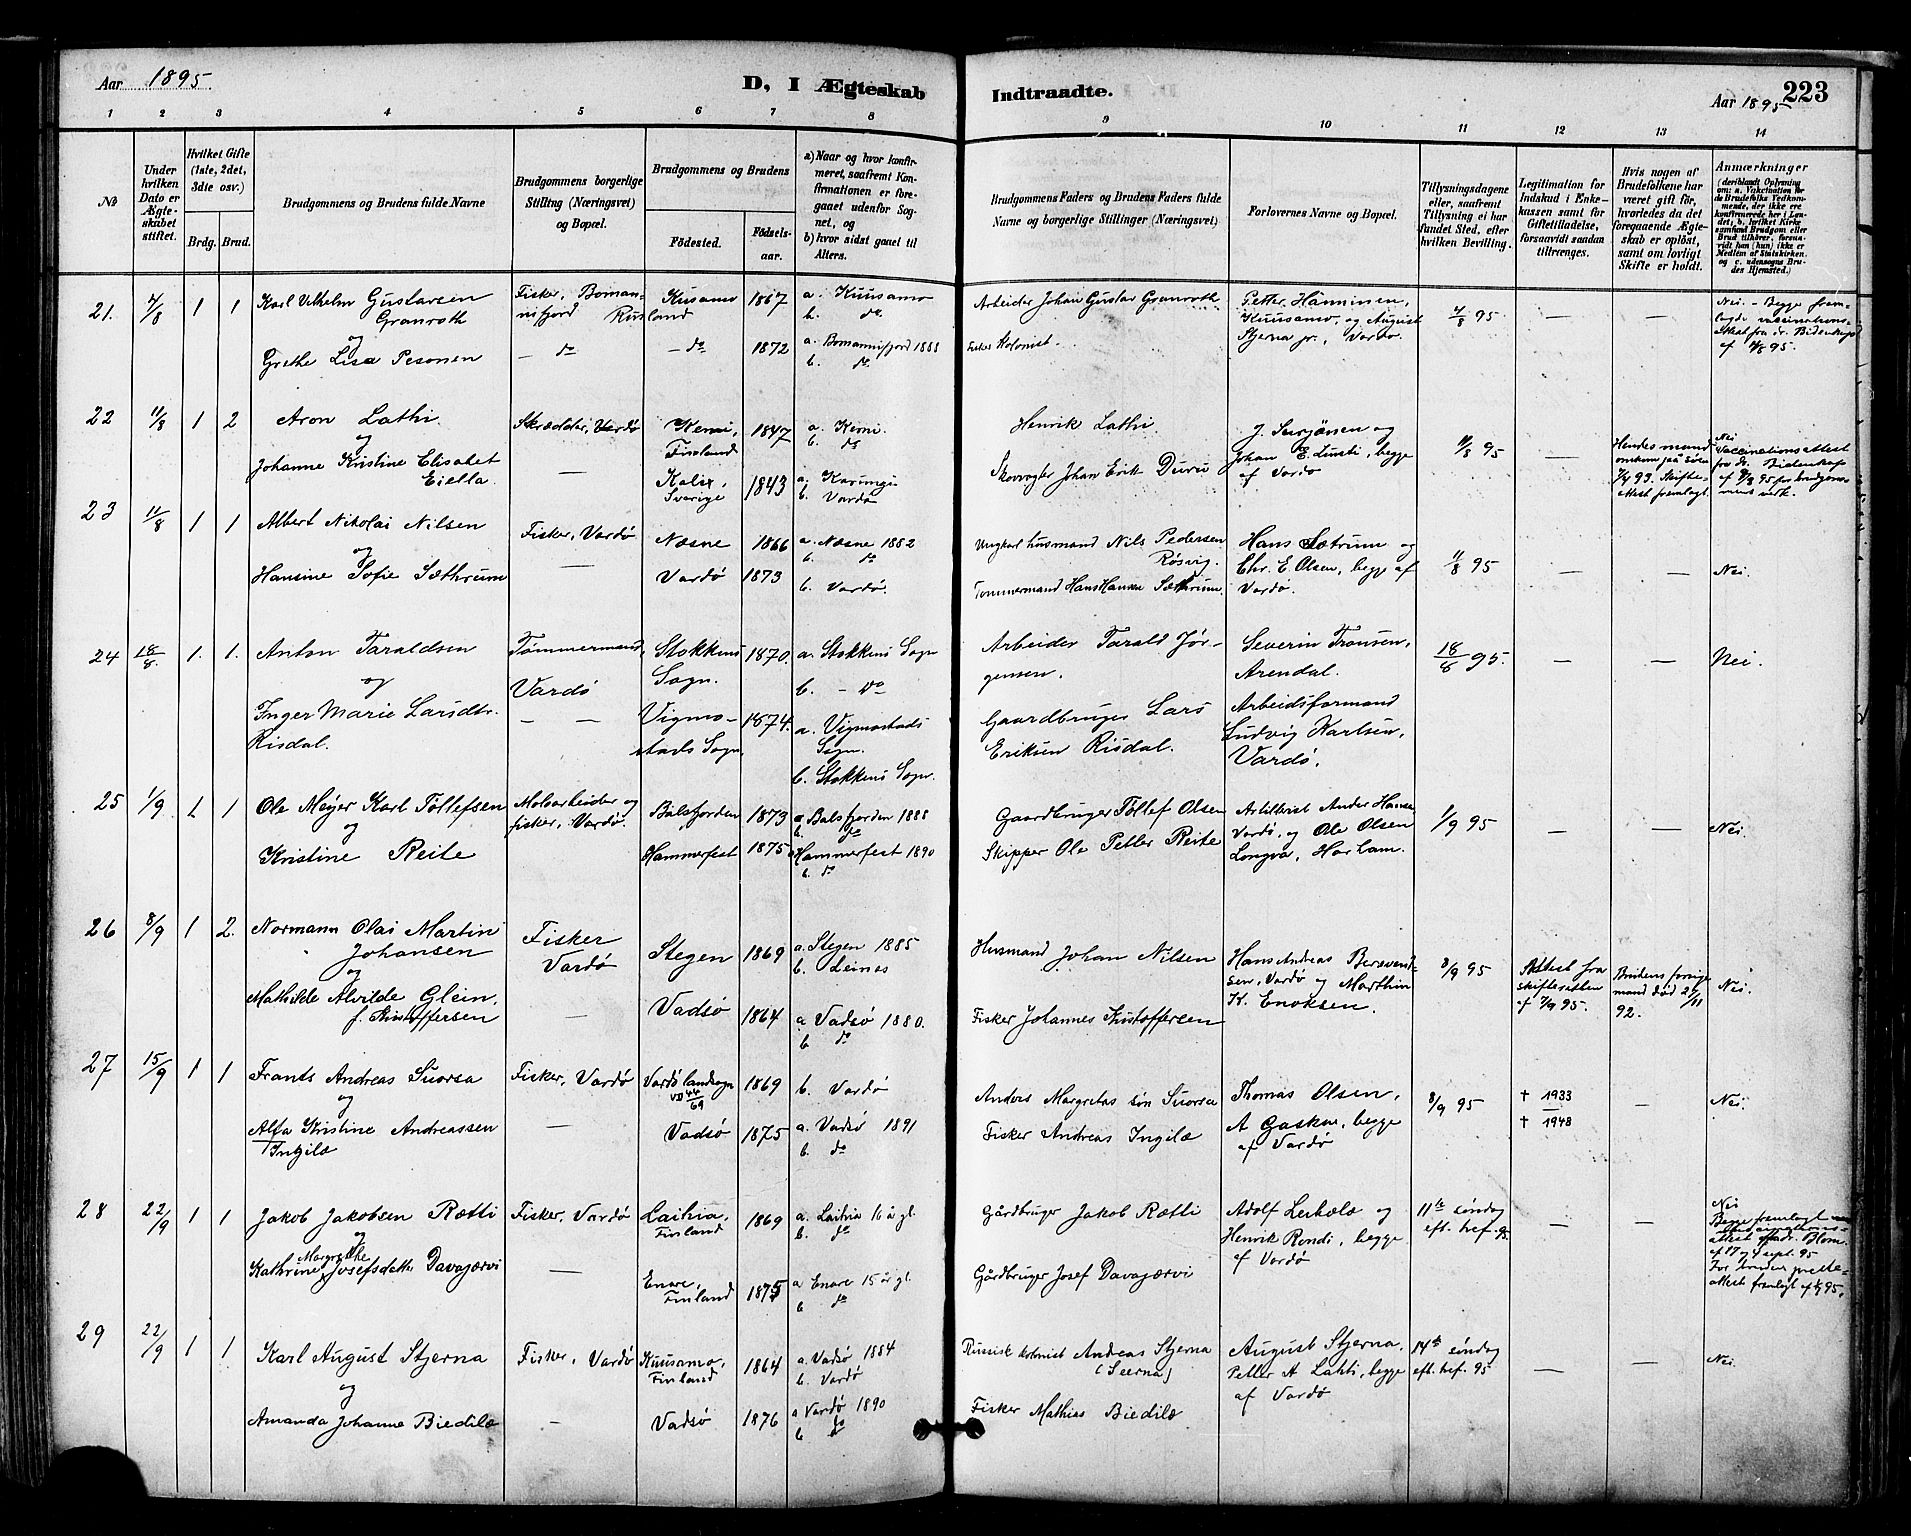 Aar 1895.
D, I Ægteskab
Indtraadte.
Aar 1895
223
1 2 3 4 5 6 7 8 9 10 11 12 13 14
No
Under hvilken Dato er Ægteskabet stiftet.
Hvilket Gifte (1ste, 2det, 3die osv.)
Brdg. Brud.
Brudgommens og Brudens fulde Navne
Brudgommens borgerlige Stilling (Næringsvei) og Bopæl.
Brudgommens og Brudens
Fødested. Fødselsaar.
a) Naar og hvor konfirmeret, saafremt Konfirmationen er foregaaet udenfor Sognet, og
b) hvor sidst gaaet til Alters.
Brudgommens Faders og Brudens Faders fulde Navne og borgerlige Stillinger (Næringsvei)
Forlovernes Navne og Bopæl.
Tillysningsdagene eller, saafremt Tillysning ei har fundet Sted, efter hvilken Bevilling.
Legitimation for Indskud i Enkekassen samt for Giftetilladelse, forsaavidt saadan tiltrænges.
Hvis nogen af Brudefolkene har været gift før, hvorledes da det foregaaende Ægteskab er opløst, samt om lovligt Skifte er holdt.
Anmærkninger (deriblandt Oplysning om: a. Vakcination for de Brudefolks Vedkommende, der ikke ere konfirmerede her i Landet; b. hvilket Kirkesamfund Brudgom eller Brud tilhører, forsaavidt han (hun) ikke er Medlem af Statskirken, og c. udensogns Brudes Hjemsted.)
21. 4/8 1 1 Karl Vilhelm Gustavsen Granroth
og
Grethe Lisa Pesonen
Fisker, Bomannifjord Rusland
— do
Kusamo 1867
— do 1872
a. Kuusamo
b. do
a. Bomannifjord 1888
b. do
Arbeider Johan Gustav Granroth
Fisker Kolonist.
Petter Hänninen, Kuusamo, og August Stjerna jr., Vardø.
4/8 95
—
—
Nei. - Begge fremlagde vaccinationsattest fra dr. Bidenkap af 95.
22 11/8 1 2 Aron Lathi
og
Johanne Kristine Elisabet Eiella.
Skrædder, Vardø
—
Kemi, Finland 1847
Kalix, Sverige 1843
a. Kemi.
b. do
a. Karungi
b. Vardø
Henrik Lathi.
Skovvogter Johan Erik
J. og Johan E. begge af Vardø
11/8 95
—
Hendes mand omkom paa søen 93. Skifteattest fremlagt.
Nei Vaccinationsattest fra dr. Bidenkap af 95 for brudgommens vedk.
23 11/8 1 1 Albert Nikolai Nilsen
og
Hansine Sofie Sæthrum
Fisker, Vardø
—
Næsne 1866
Vardø 1873
a. Næsne 1882
b. do
b. Vardø.
Ungkarl husmand Nils Pedersen Røsvig.
Tømmermand Hans Hansen Sæthrum.
Hans Sætrum og Chr. E. Olsen, begge af Vardø.
11/8 95
—
—
Nei.
24 18/8. 1. 1. Anton Taraldsen
og
Inger Marie Larsdtr. Risdal.
Tømmermand, Vardø
— —
Stokkens Sogn. 1870.
Vigmostads Sogn 1874.
a. Stokkens Sogn
b. - do
a. Vigmostads Sogn.
b. Stokkens Sogn.
Arbeider Tarald Jørgensen.
Gaardbruger Lars Eriksen Risdal.
Severin Tronsen, Arendal.
Arbeidsformand Ludvig Karlsen, Vardø.
18/8 95.
—
—
Nei.
25 1/9 1 1 Ole Mejer Karl Tøllefsen
og
Kristine Reite
Moloarbeider og fisker, Vardø.
Balsfjorden 1873
Hammerfest 1875
a. Balsfjorden 1888
b. do
a Hammerfest 1890
b. do
Gaardbruger Tøllef Olsen
Skipper Ole Petter Reite
Artillerist Ander Hansen Vardø, og Ole Olsen Longva, Harham.
1/9 95
—
—
Nei.
26 8/9 1 2. Normann Olai Martin Johansen
og
Mathilde Alvilde Glein, f. Kristoffersen
Fisker Vardø
—
Stegen 1869
Vadsø 1864
a. Stegen 1885
b. Leines
a Vadsø 1880.
b do
Husmand Johan Nilsen
Fisker Johannes Kristoffersen
Hans Andreas Berevendsen, Vardø og Marthin K. Enoksen.
8/9 95
Attest fra skifteretten af 7/9 95.
Brudens forrige mand død 27/11 92.
Nei.
27 15/9 1 1 Frants Andreas Suorsa
og
Alfa Kristine Andreassen Ingilæ
Fisker, Vardø
—
Vardø landsogn VII 44/69 1869
Vadsø 1875
b. Vardø
a. Vadsø 1891
b. do
Anders Margretas søn Suorsa
Fisker Andreas Ingilæ
Thomas Olsen, A Gaskar, begge af Vardø
8/9 95
† 1933
† 1948
—
Nei.
28 22/9 1 1 Jakob Jakobsen Rætti
og
Kathrine Margrethe Josefsdatter Davajærvi
Fisker, Vardø
—
Laihia, Finland 1869
Enare, Finland 1875
a. Laihia 16 år gl.
b. do
a Enare 15 år gl.
b do
Gårdbruger Jakob Rætti
Gårdbruger Josef Davajærvi
Adolf Lerkælæ og Henrik Rendi, begge af Vardø
11te søndag eft. tref. 95
—
—
Nei
Begge fremlagt vaccinationsattest fra dr. Blom af 17 og 4 sept. 95
For bruden presteattest fremlagt af 95.
29 22/9 1 1 Karl August Stjerna
og
Amanda Johanne Biedilæ
Fisker, Vardø
—
Kuusamo, Finland 1864
Vadsø 1876
a. Vadsø 1884
b. Vardø
a Vardø 1890
b do
Russisk kolonist Andreas Stjerna (Seerna)
Fisker Mathias Biedilæ
August Stjerna, Petter A Lahti, begge af Vardø
14de søndag eft. tref. 95
—
—
Nei.